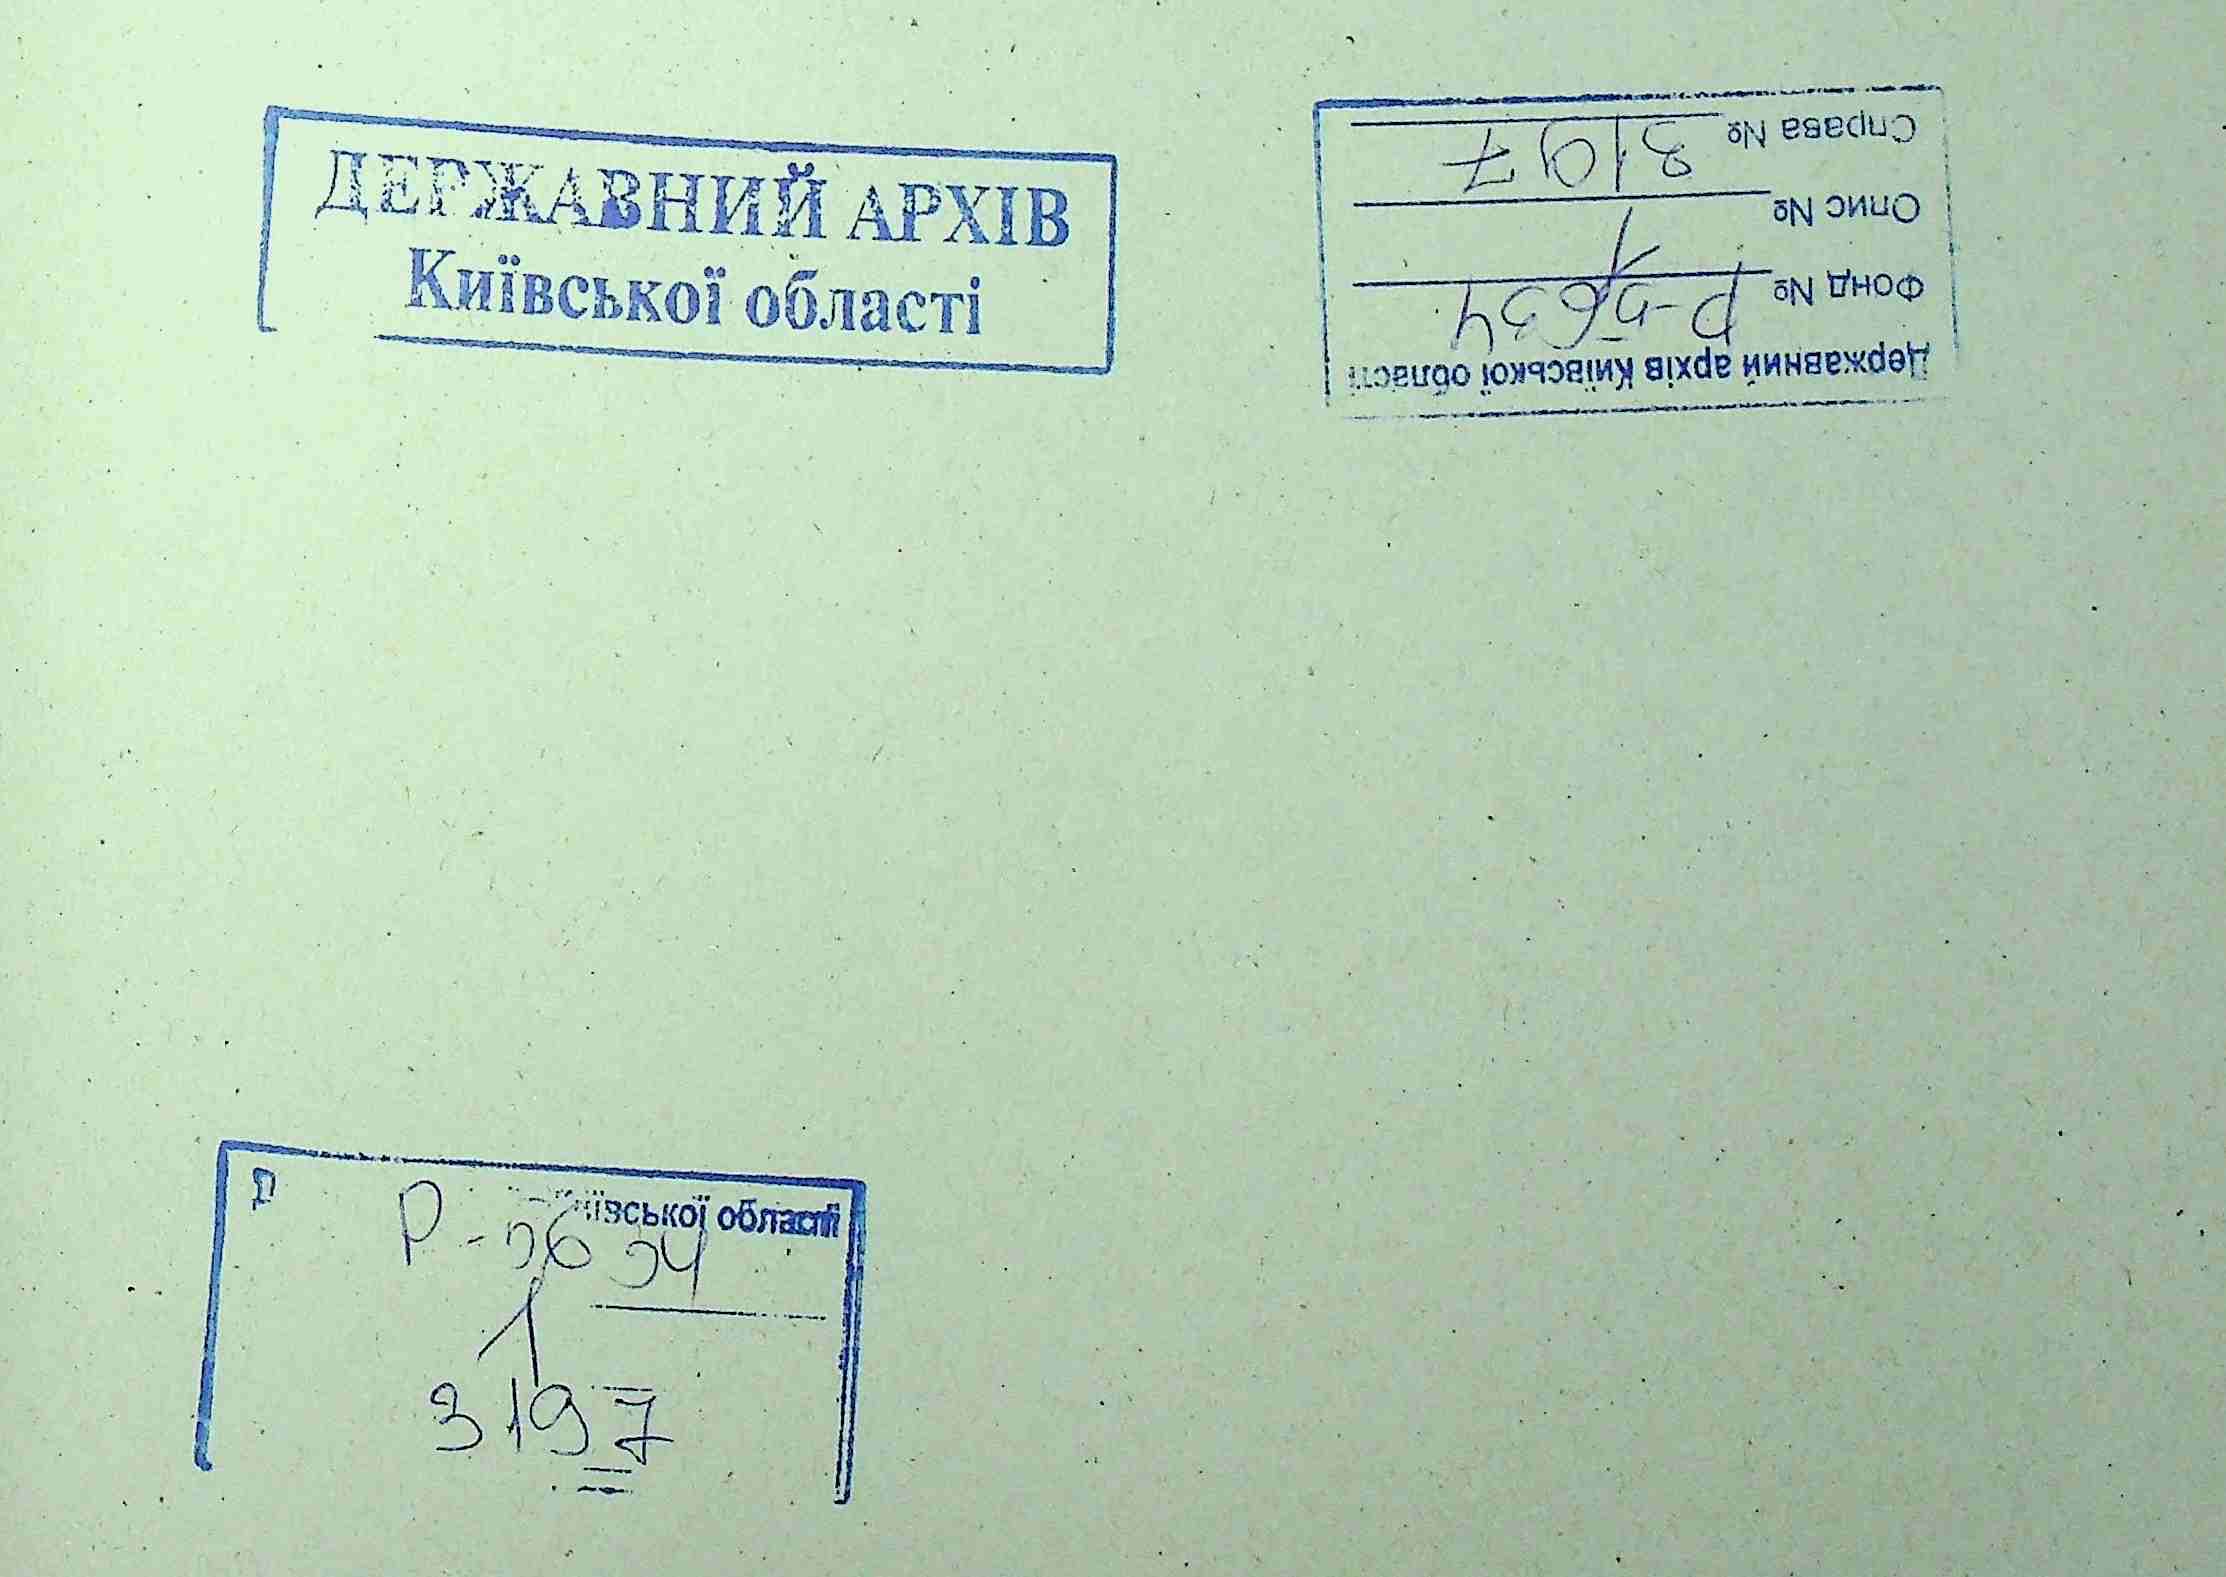 ДЕРЖАВНИЙ АРХІВ
Київської області
Державний архів Київської області
Фонд № Р-5634
Опис № 1
Справа № 3197
Київської області
Р-5634
1
3197